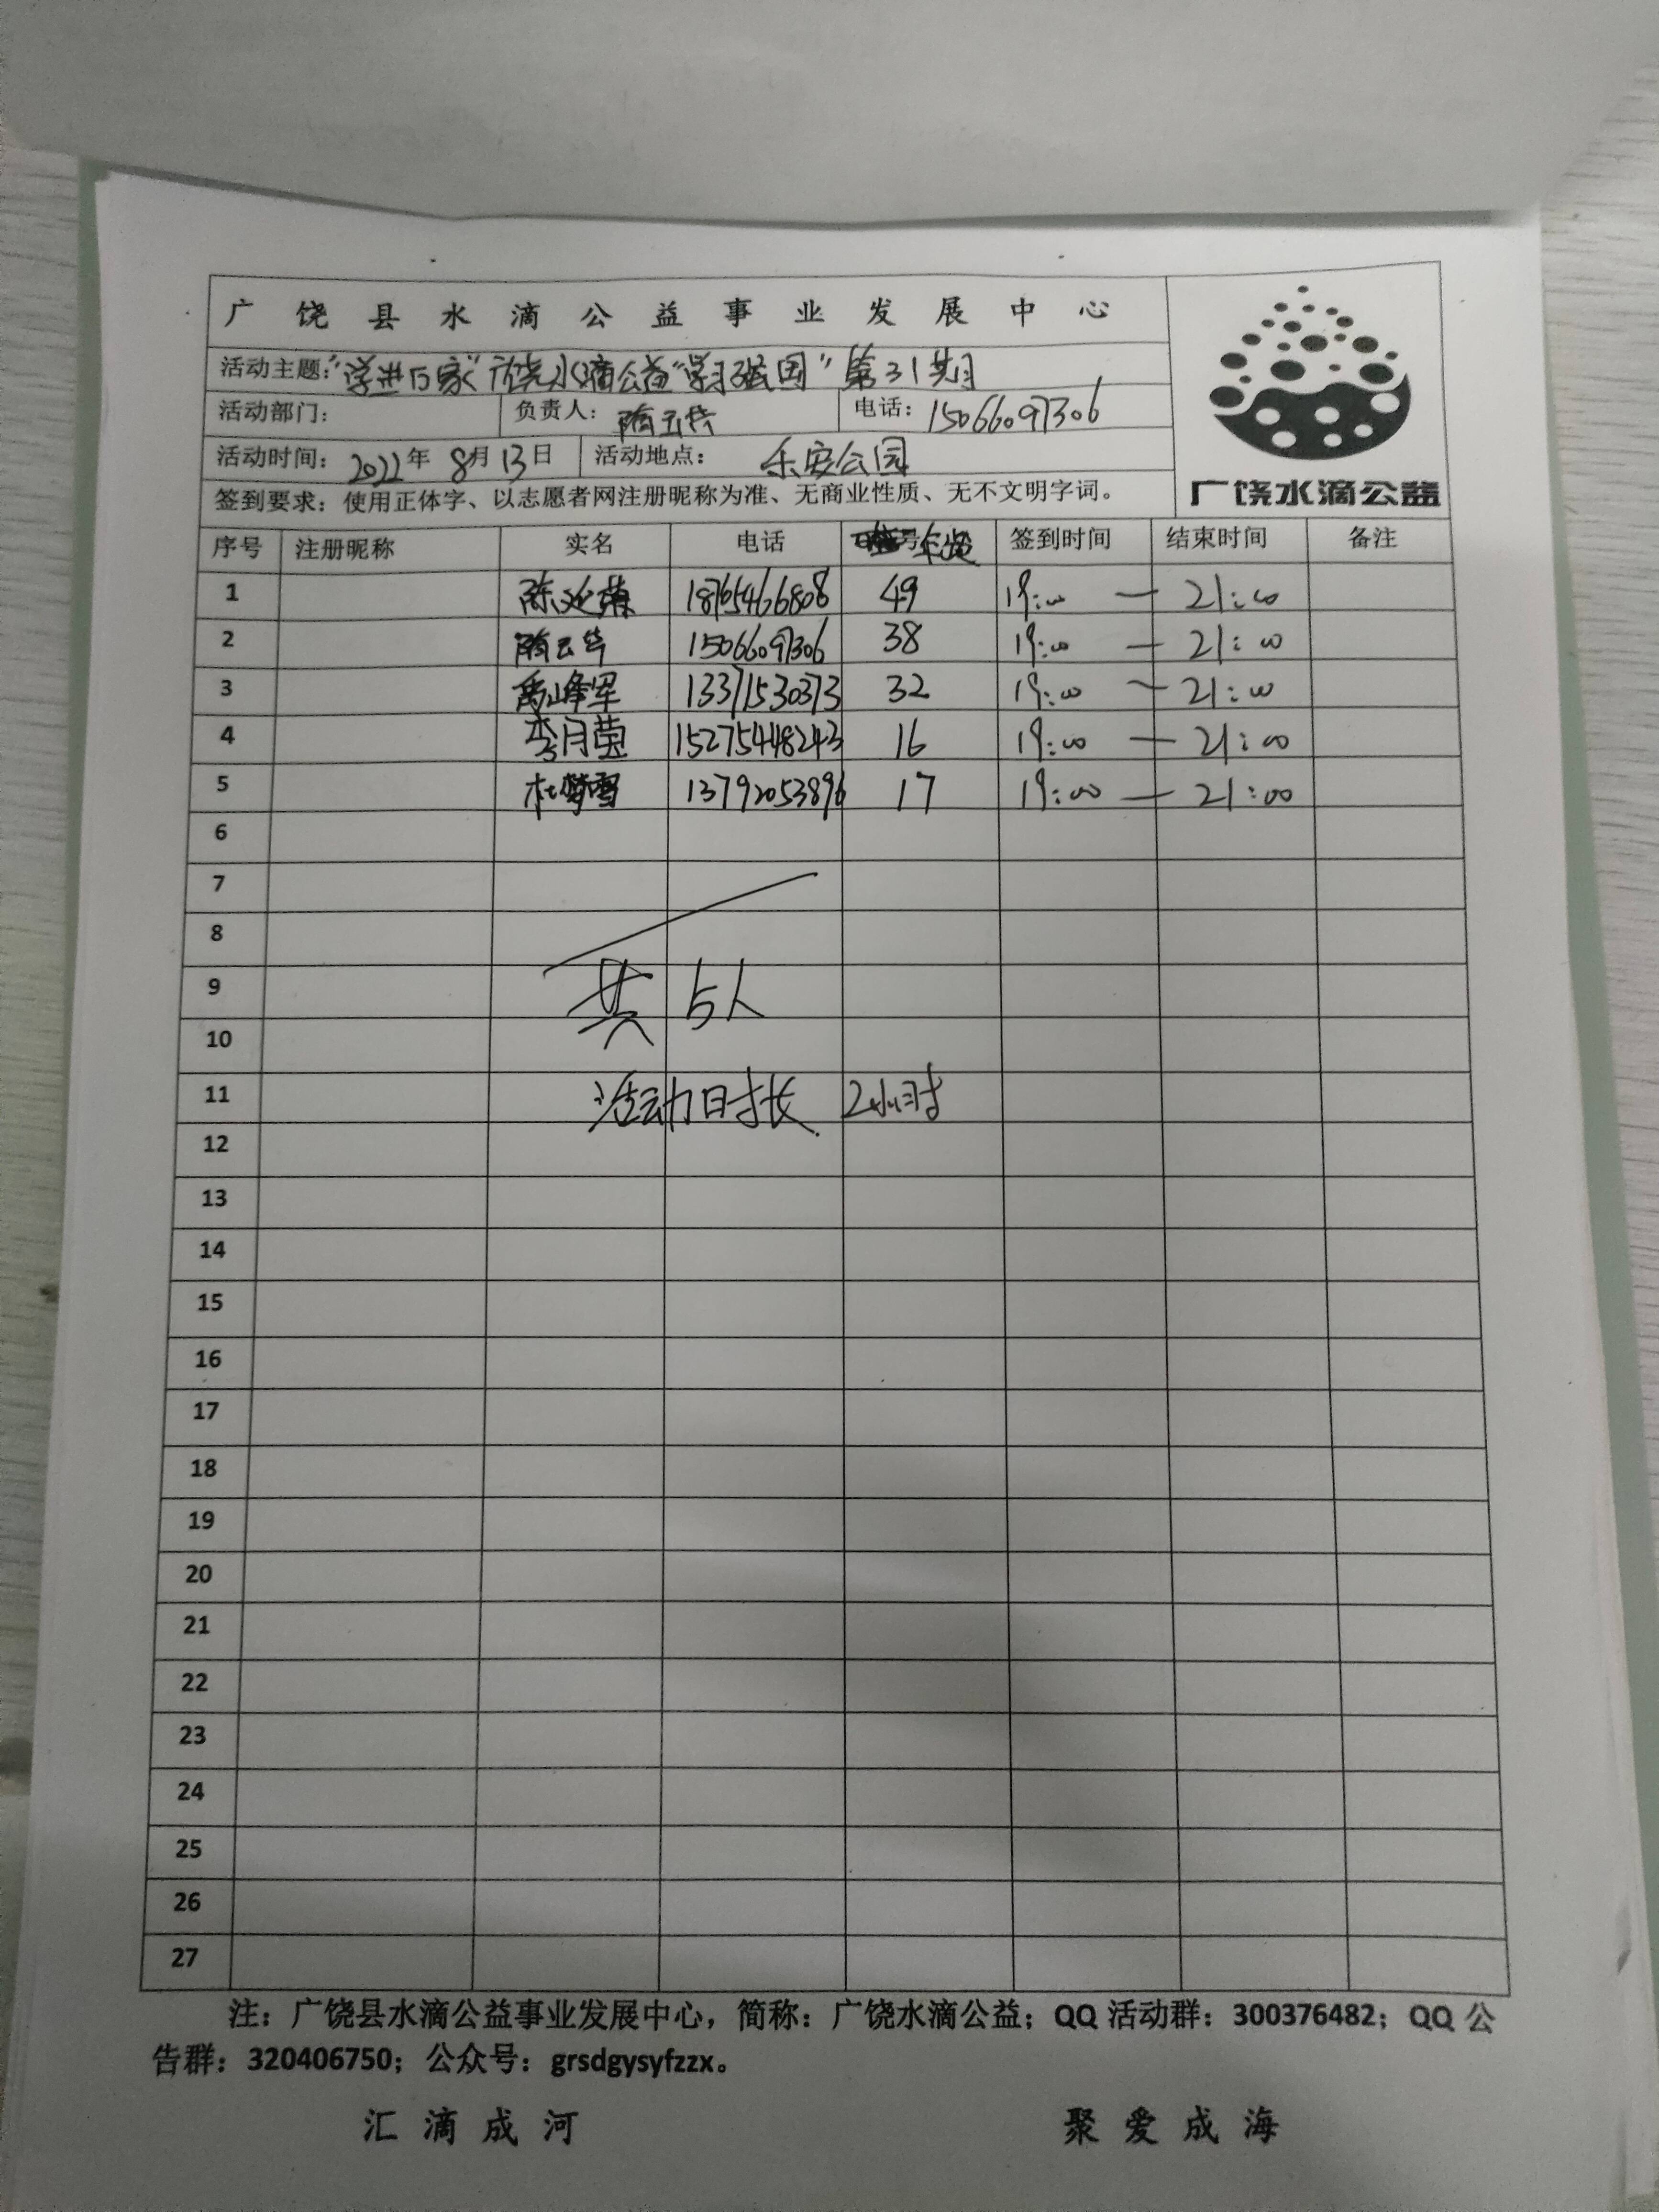 广饶县水滴公益事业发展中心
活动主题："学进万家"广饶水滴公益"学习强国"第31期
活动部门： 负责人：隋云华 电话：15066097306
活动时间：2022年8月13日 活动地点：乐安公园
签到要求：使用正体字、以志愿者网注册昵称为准、无商业性质、无不文明字词。
广饶水滴公益
序号 注册昵称 实名 电话 号 年龄 签到时间 结束时间 备注
1 陈 18765466808 49 19:00 — 21:00
2 隋云华 15066097306 38 19:00 — 21:00
3 禹峰军 13371530373 32 19:00 — 21:00
4 李月莹 15275448243 16 19:00 — 21:00
5 杜梦雪 13792053896 17 19:00 — 21:00
6
7
8
9
共5人
10
11
活动时长 2小时
12
13
14
15
16
17
18
19
20
21
22
23
24
25
26
27
注：广饶县水滴公益事业发展中心，简称：广饶水滴公益；QQ活动群：300376482；QQ公
告群：320406750；公众号：grsdgysyfzzx。
汇滴成河 聚爱成海